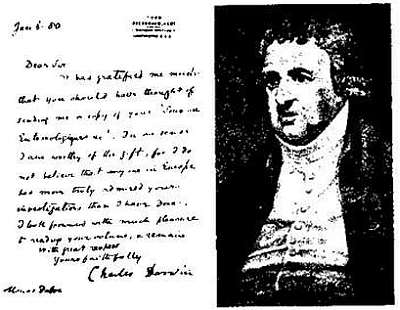 Jan 6. 80
Dear Sir
It has gratified me much
that you should have thought of
sending me a copy of your "Souvenirs
Entomologiques". In no sense
I am worthy of the gift, for I do
not believe that any one in Europe
has more truly admired your
investigations than I have done.
I look forward with much pleasure
to reading your volume, & remain
with great respect
Yours faithfully
Charles Darwin